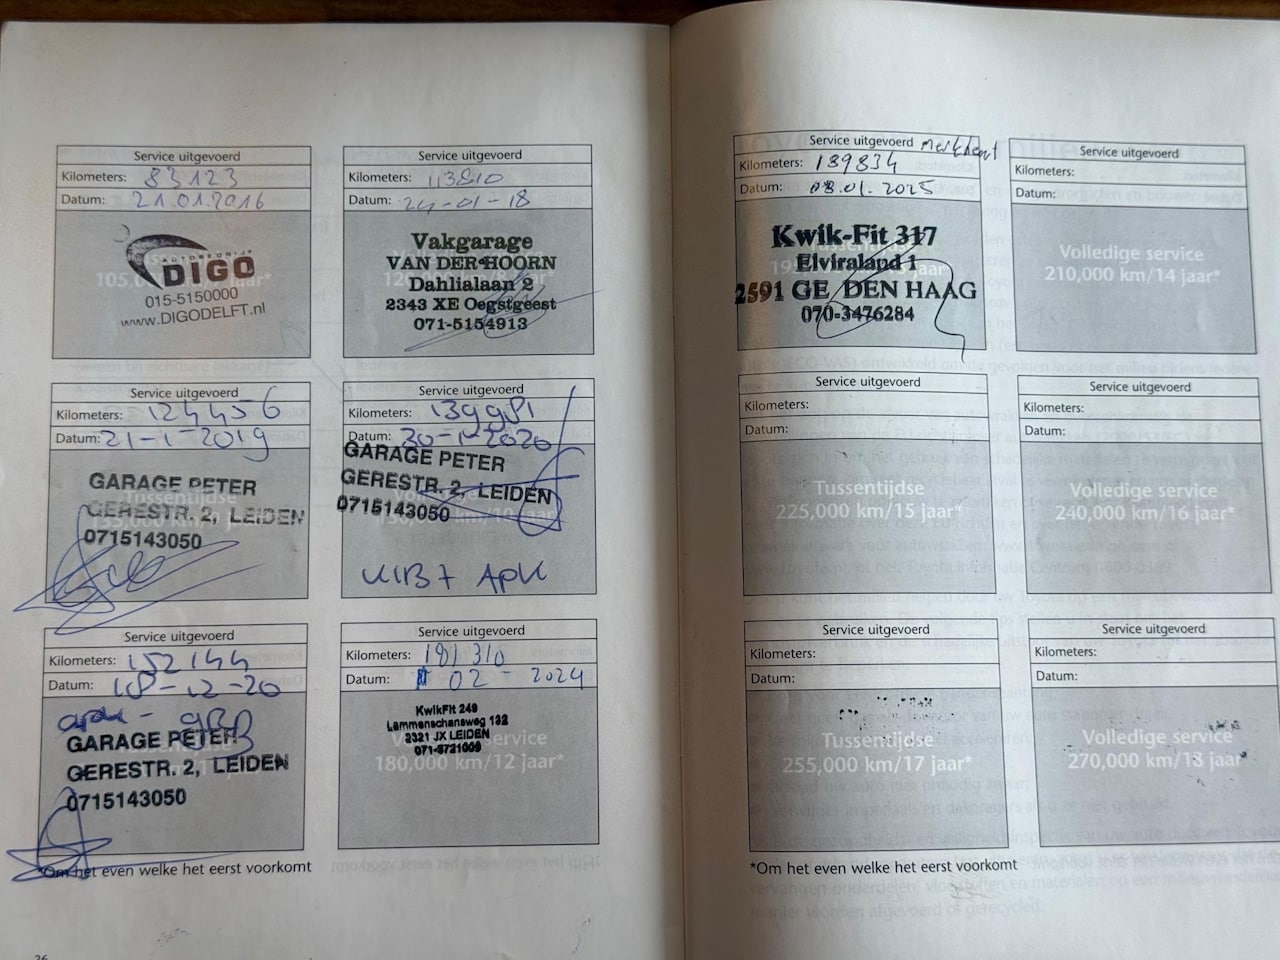 Service uitgevoerd
Kilometers: 83123
Datum: 21.01.2016
AUTOBEDRIJF
DIGO
105,0
015-5150000
www.DIGODELFT.nl
Service uitgevoerd
Kilometers: 113810
Datum: 24-01-18
Vakgarage
VAN DER HOORN
Dahlialaan 2
2343 XE Oegstgeest
071-5154913
Service uitgevoerd
Kilometers: 124456
Datum: 21-1-2019
GARAGE PETER
Tussentijdse
GERESTR. 2, LEIDEN
135,000 km/9 jaar*
0715143050
Service uitgevoerd
Kilometers: 139981
Datum: 30-1-2020
GARAGE PETER
GERESTR. 2, LEIDEN
0715143050
KIB7 APK
Service uitgevoerd
Kilometers: 152144
Datum: 18-12-20
apk - gBB
GARAGE PETER
GERESTR. 2, LEIDEN
0715143050
Service uitgevoerd
Kilometers: 181310
Datum: 02 - 2024
KwikFit 249
Lammenschansweg 132
2321 JX LEIDEN
071-5721009
service
180,000 km/12 jaar*
*Om het even welke het eerst voorkomt
26
Service uitgevoerd
Kilometers: 189834
Datum: 08.01.2025
Kwik-Fit 317
Elviraland 1
2591 GE DEN HAAG
070-3476284
Service uitgevoerd
Kilometers:
Datum:
Volledige service
210,000 km/14 jaar*
Service uitgevoerd
Kilometers:
Datum:
Tussentijdse
225,000 km/15 jaar*
Service uitgevoerd
Kilometers:
Datum:
Volledige service
240,000 km/16 jaar*
Service uitgevoerd
Kilometers:
Datum:
Tussentijdse
255,000 km/17 jaar*
Service uitgevoerd
Kilometers:
Datum:
Volledige service
270,000 km/18 jaar*
*Om het even welke het eerst voorkomt